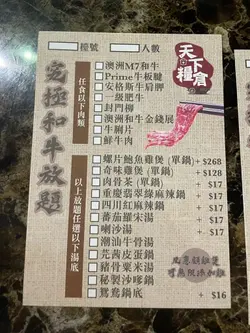 檯號
人數
天下糧倉
究極和牛放題
任食以下肉類
澳洲M7和牛
Prime牛板腱
安格斯牛肩胛
一級肥牛
封門柳
澳洲和牛金錢展
牛脷片
鮮牛肉
以上放題任選以下湯底
螺片鮑魚雞煲 (單鍋) + $268
奇味雞煲 (單鍋) + $128
肉骨茶 (單鍋) + $17
重慶翡翠綠麻辣鍋 + $17
四川紅麻辣鍋 + $17
蕃茄薯茸湯 + $17
喇沙湯 + $17
潮汕牛骨湯
芫茜皮蛋鍋
豬骨粟米湯
秘製沙嗲鍋
鴛鴦鍋底 + $16
可無限添加雞